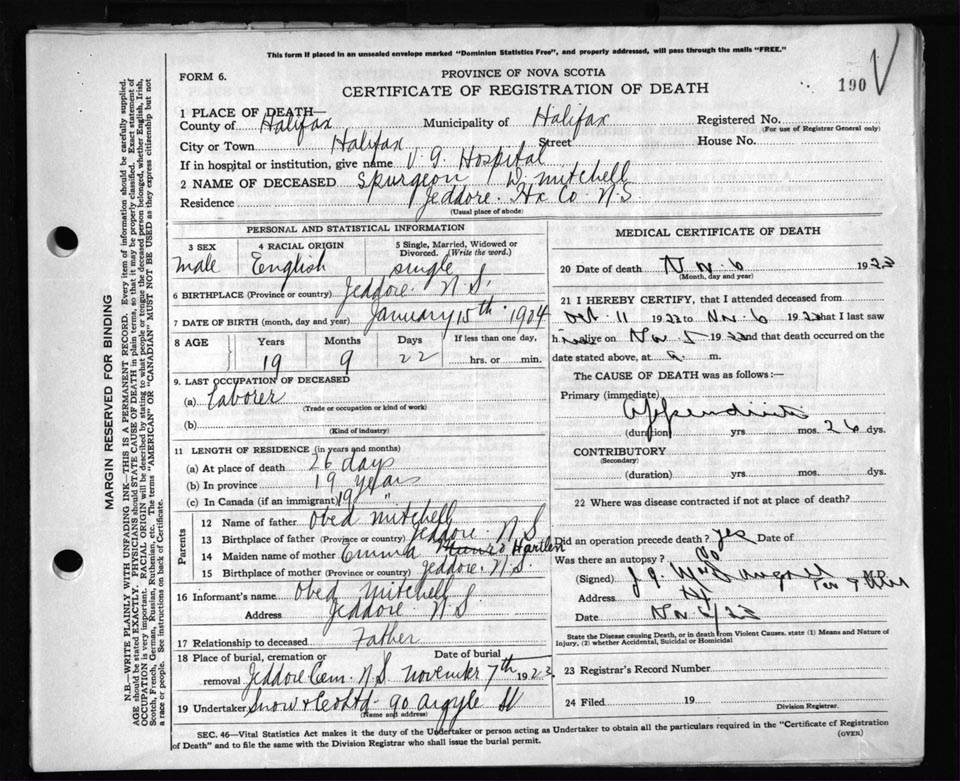 This form if placed in an unsealed envelope marked "Dominion Statistics Free", and properly addressed, will pass through the mails "FREE."
FORM 6.
PROVINCE OF NOVA SCOTIA
CERTIFICATE OF REGISTRATION OF DEATH
190
1 PLACE OF DEATH—
County of Halifax Municipality of Halifax Registered No.
(For use of Registrar General only)
City or Town Halifax Street House No.
If in hospital or institution, give name V. G. Hospital
2 NAME OF DECEASED Spurgeon W. Mitchell
Residence Jeddore. Hx Co. N.S.
(Usual place of abode)
PERSONAL AND STATISTICAL INFORMATION
3 SEX 4 RACIAL ORIGIN 5 Single, Married, Widowed or Divorced. (Write the word.)
Male English single
6 BIRTHPLACE (Province or country) Jeddore. N.S.
7 DATE OF BIRTH (month, day and year) January 15th 1904
8 AGE Years Months Days If less than one day,
19 9 22 hrs. or min.
9. LAST OCCUPATION OF DECEASED
(a) Laborer
(Trade or occupation or kind of work)
(b)
(Kind of industry)
11 LENGTH OF RESIDENCE (in years and months)
(a) At place of death 26 days
(b) In province 19 years
(c) In Canada (if an immigrant) 19 "
Parents
12 Name of father Obed Mitchell
13 Birthplace of father (Province or country) Jeddore. N.S
14 Maiden name of mother Emma Hartlen
15 Birthplace of mother (Province or country) Jeddore. N.S.
16 Informant's name Obed Mitchell
Address Jeddore. N.S.
17 Relationship to deceased Father
18 Place of burial, cremation or removal Date of burial
Jeddore Cem. N.S. November 7th 1923
19 Undertaker Snow & Co Ltd - 90 Argyle St
(Name and address)
MEDICAL CERTIFICATE OF DEATH
20 Date of death Nov. 6 1923
(Month, day and year)
21 I HEREBY CERTIFY, that I attended deceased from
Oct. 11 1923 to Nov. 6 1923 that I last saw
h alive on Nov. 5 1923 and that death occurred on the
date stated above, at a. m.
The CAUSE OF DEATH was as follows:—
Primary (immediate)
Appendicitis
(duration) yrs. mos. 26 dys.
CONTRIBUTORY
(Secondary)
(duration) yrs. mos. dys.
22 Where was disease contracted if not at place of death?
Did an operation precede death? yes Date of
Was there an autopsy? No
(Signed) M.D.
Address
Date Nov 6/23
State the Disease causing Death, or in death from Violent Causes, state (1) Means and Nature of Injury, (2) whether Accidental, Suicidal or Homicidal
23 Registrar's Record Number
24 Filed 19
Division Registrar.
SEC. 46—Vital Statistics Act makes it the duty of the Undertaker or person acting as Undertaker to obtain all the particulars required in the "Certificate of Registration
of Death" and to file the same with the Division Registrar who shall issue the burial permit.
(OVER)
MARGIN RESERVED FOR BINDING
N.B.—WRITE PLAINLY WITH UNFADING INK—THIS IS A PERMANENT RECORD. Every item of information should be carefully supplied.
AGE should be stated EXACTLY. PHYSICIANS should STATE CAUSE OF DEATH in plain terms, so that it may be properly classified. Exact statement of
OCCUPATION is very important. RACIAL ORIGIN will be described by stating to what people or tongue the deceased person belonged, whether English, Irish,
Scotch, French, German, Russian, Ruthenian, etc. The terms "AMERICAN" or "CANADIAN" MUST NOT BE USED as they express citizenship but not
a race or people. See instructions on back of Certificate.